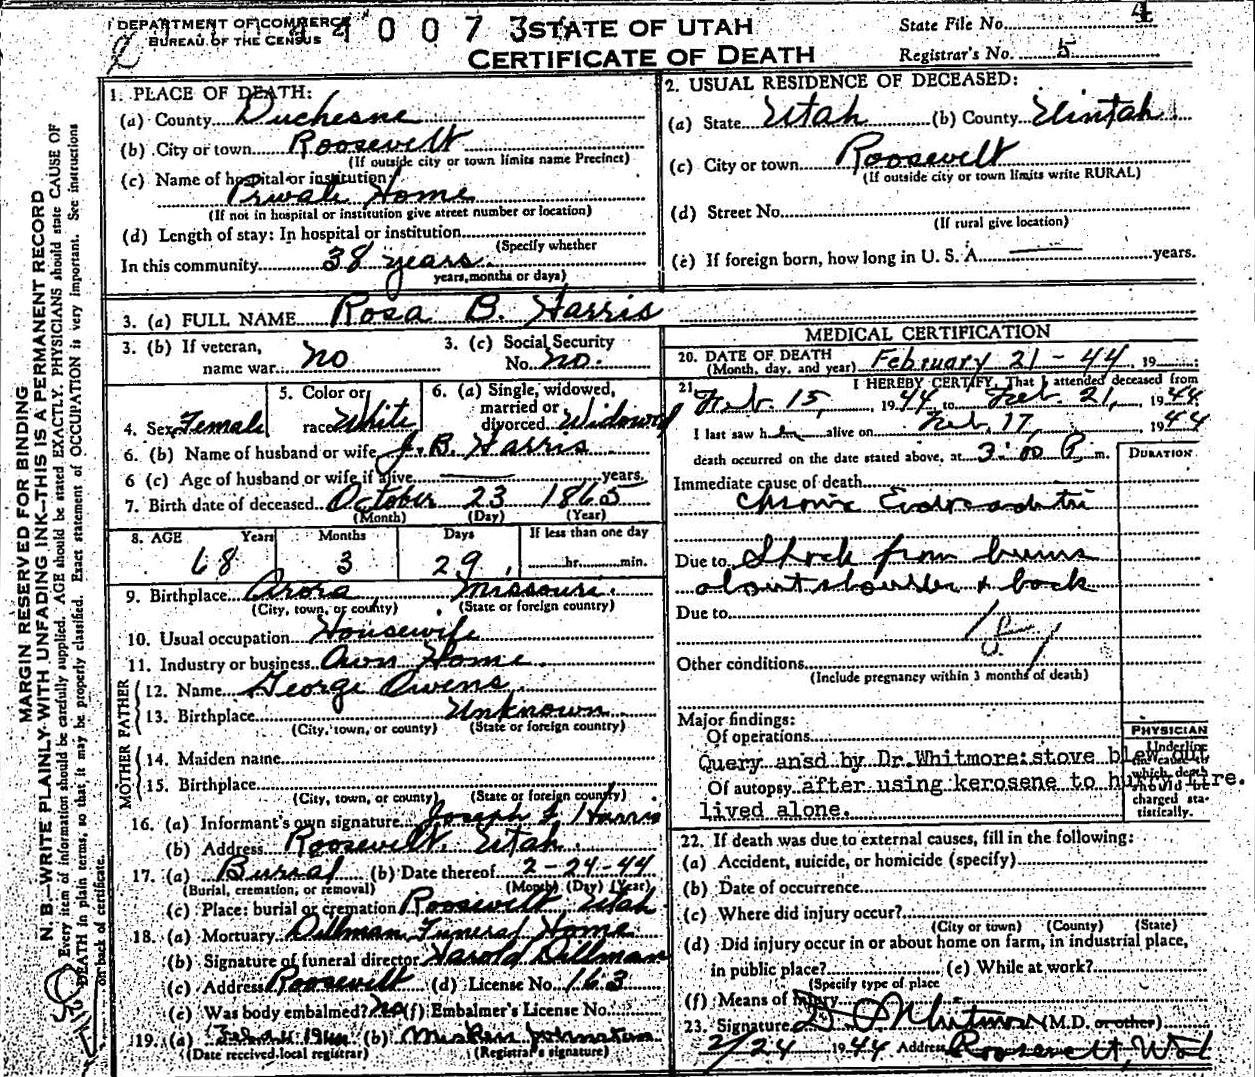 DEPARTMENT OF COMMERCE
BUREAU OF THE CENSUS
4 0 0 7 3
STATE OF UTAH
CERTIFICATE OF DEATH
State File No. 4
Registrar's No. 5
MARGIN RESERVED FOR BINDING
N. B.—WRITE PLAINLY WITH UNFADING INK—THIS IS A PERMANENT RECORD
Every item of information should be carefully supplied. AGE should be stated EXACTLY. PHYSICIANS should state CAUSE OF
DEATH in plain terms, so that it may be properly classified. Exact statement of OCCUPATION is very important. See instructions
on back of certificate.
1. PLACE OF DEATH:
(a) County Duchesne
(b) City or town Roosevelt
(If outside city or town limits name Precinct)
(c) Name of hospital or institution:
Private Home
(If not in hospital or institution give street number or location)
(d) Length of stay: In hospital or institution
(Specify whether
In this community 38 years
years, months or days)
2. USUAL RESIDENCE OF DECEASED:
(a) State Utah (b) County Uintah
(c) City or town Roosevelt
(If outside city or town limits write RURAL)
(d) Street No.
(If rural give location)
(e) If foreign born, how long in U. S. A. years.
3. (a) FULL NAME Rosa B. Harris
3. (b) If veteran, name war no
3. (c) Social Security No. no.
4. Sex Female
5. Color or race White
6. (a) Single, widowed, married or divorced Widowed
6. (b) Name of husband or wife J. B. Harris
6 (c) Age of husband or wife if alive years.
7. Birth date of deceased October 23 1865
(Month) (Day) (Year)
8. AGE Years Months Days If less than one day
68 3 29 hr. min.
9. Birthplace Arora Missouri.
(City, town, or county) (State or foreign country)
10. Usual occupation Housewife
11. Industry or business Own Home
FATHER
12. Name George Owens
13. Birthplace Unknown
(City, town, or county) (State or foreign country)
MOTHER
14. Maiden name
15. Birthplace
(City, town, or county) (State or foreign country)
16. (a) Informant's own signature Joseph F. Harris
(b) Address Roosevelt, Utah.
17. (a) Burial (b) Date thereof 2-24-44
(Burial, cremation, or removal) (Month) (Day) (Year)
(c) Place: burial or cremation Roosevelt Utah
18. (a) Mortuary Dillman Funeral Home
(b) Signature of funeral director Harold Dillman
(c) Address Roosevelt (d) License No. 163
(e) Was body embalmed? no (f) Embalmer's License No.
19. (a) (b) Johnston
(Date received local registrar) (Registrar's signature)
MEDICAL CERTIFICATION
20. DATE OF DEATH February 21-44, 19
(Month, day, and year)
21. I HEREBY CERTIFY, That I attended deceased from
Feb. 15, 1944 to Feb. 21, 1944
I last saw h alive on Feb. 17, 1944
death occurred on the date stated above, at 3:00 P. m.
DURATION
Immediate cause of death
Chronic Endocarditis
Due to Shock from burns
about shoulder & back
Due to
181
Other conditions
(Include pregnancy within 3 months of death)
Major findings:
Of operations
Query ansd by Dr. Whitmore: stove blew out
Of autopsy after using kerosene to hurry fire.
lived alone.
PHYSICIAN
Underline
the cause to
which death
should be
charged sta-
tistically.
22. If death was due to external causes, fill in the following:
(a) Accident, suicide, or homicide (specify)
(b) Date of occurrence
(c) Where did injury occur?
(City or town) (County) (State)
(d) Did injury occur in or about home on farm, in industrial place,
in public place? (e) While at work?
(Specify type of place
(f) Means of Injury
23. Signature Whitmore (M.D. or other)
2/24 1944 Address Roosevelt, Utah